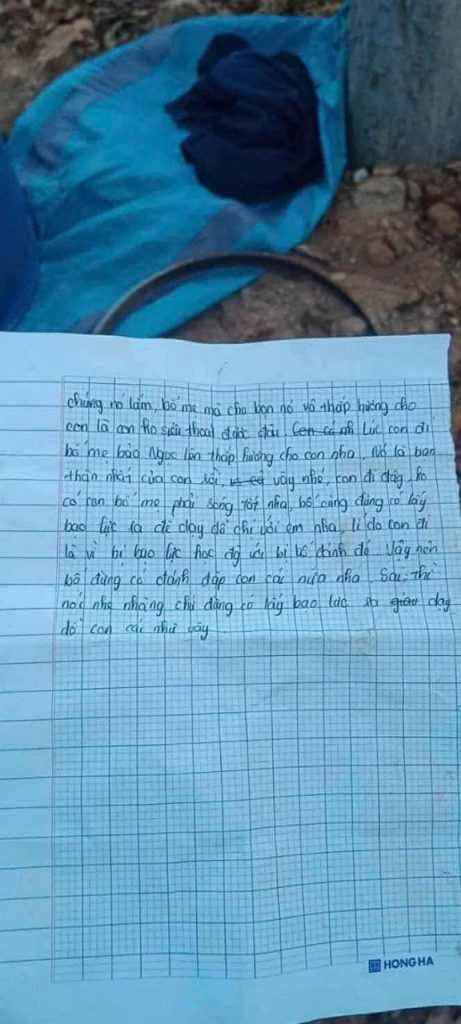 chúng nó lắm, bố mẹ mà cho bọn nó vô thắp hương cho
con là con ko siêu thoát được đâu. Con có nh Lúc con đi
bố mẹ bảo Ngọc lên thắp hương cho con nha, Nó là bạn
thân nhất của con rồi, vs cả vậy nhé, con đi đây, ko
có con bố mẹ phải sống tốt nha, bố cũng đừng có lấy
bạo lực ra để dạy dỗ chị với em nha, lí do con đi
là vì bị bạo lực học đg với bị bố đánh đó Vậy nên
bố đừng có đánh đập con cái nữa nha. Sai thì
nói nhẹ nhàng chứ đừng có lấy bạo lực ra giáo dạy
dỗ con cái như vậy
HONG HA